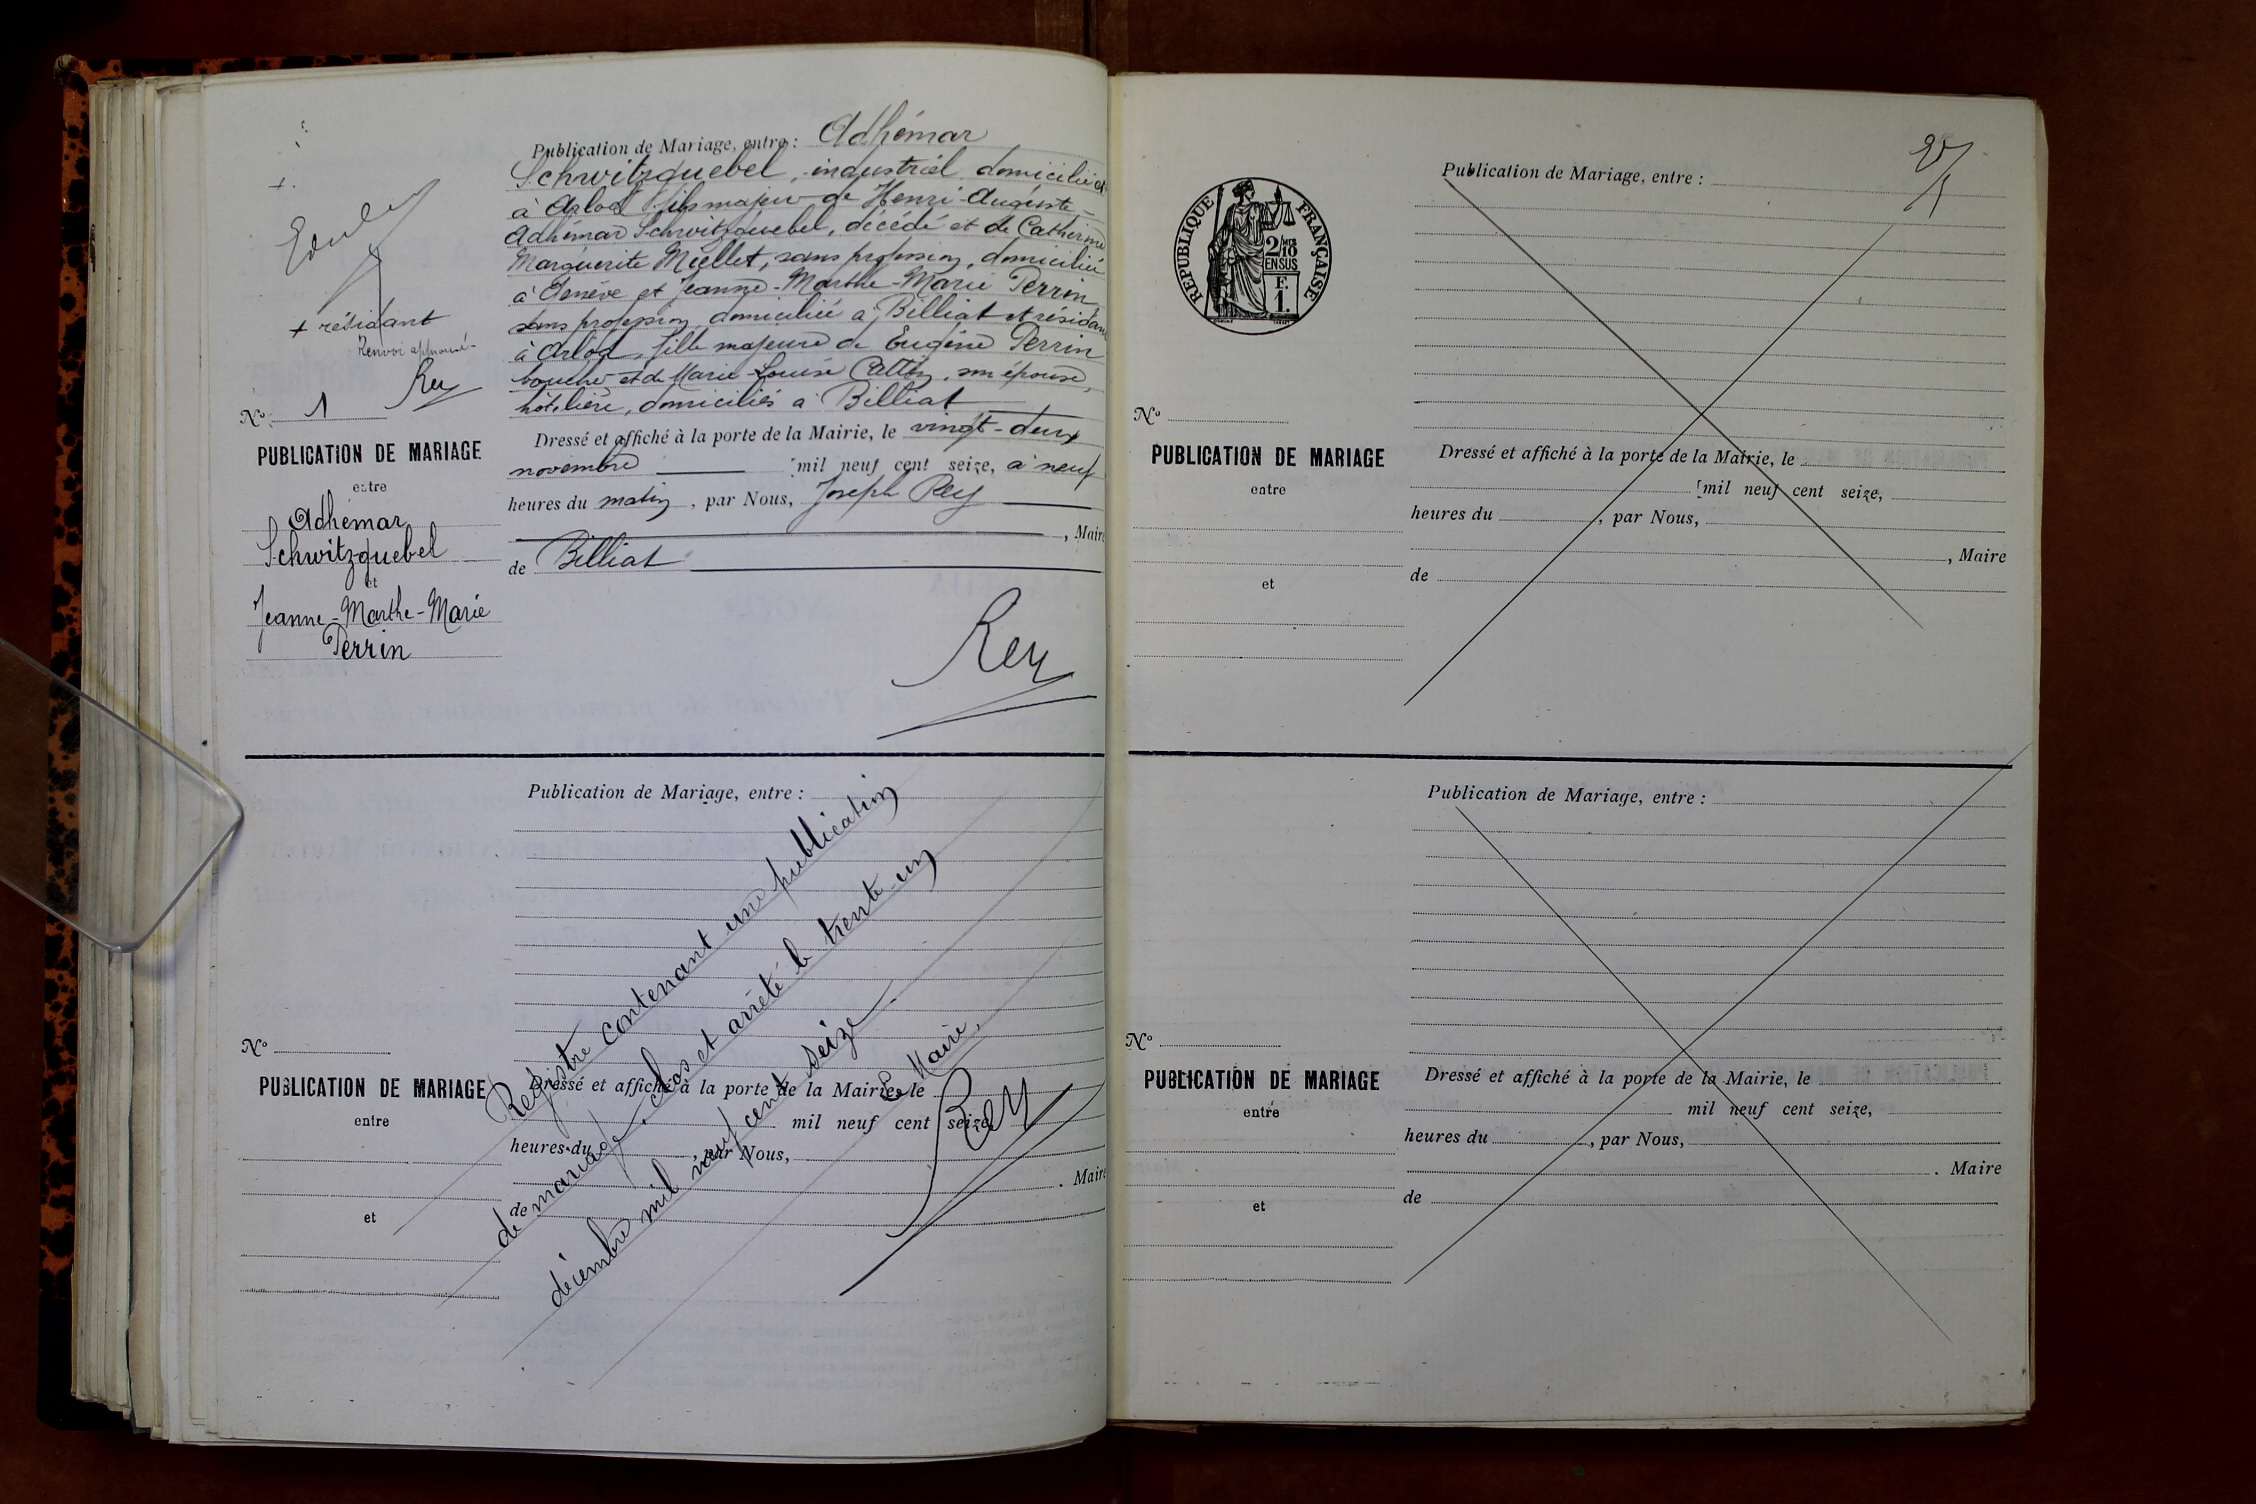 +.
+ résidant
Renvoi approuvé
Rey
N° 1
PUBLICATION DE MARIAGE
entre
Adhémar
Schwitzguebel
et
Jeanne-Marthe-Marie
Perrin
Publication de Mariage, entre : Adhémar
Schwitzguebel, industriel domicilié et
à Arlod fils majeur de Henri-Auguste-
Adhémar Schwitzguebel, décédé et de Catherine
Marguerite Miellet, sans profession, domiciliée
à Genève et Jeanne-Marthe-Marie Perrin
sans profession, domiciliée à Billiat et résidant
à Arlod, fille majeure de Eugène Perrin
boucher et de Marie-Louise Cattin, son épouse,
hôtelière, domiciliés à Billiat
Dressé et affiché à la porte de la Mairie, le vingt-deux
novembre mil neuf cent seize, à neuf
heures du matin, par Nous, Joseph Rey
, Maire
de Billiat
Rey
N°
PUBLICATION DE MARIAGE
entre
et
Publication de Mariage, entre :
Dressé et affiché à la porte de la Mairie, le
mil neuf cent seize,
heures du par Nous,
. Maire
de
Registre contenant une publication
de mariage, clos et arrêté le trente-un
décembre mil neuf cent seize.
Le Maire,
Rey
RÉPUBLIQUE FRANÇAISE
2/10
EN SUS
F.
1.
N°
PUBLICATION DE MARIAGE
entre
et
Publication de Mariage, entre :
Dressé et affiché à la porte de la Mairie, le
mil neuf cent seize,
heures du , par Nous,
, Maire
de
N°
PUBLICATION DE MARIAGE
entre
et
Publication de Mariage, entre :
Dressé et affiché à la porte de la Mairie, le
mil neuf cent seize,
heures du , par Nous,
. Maire
de